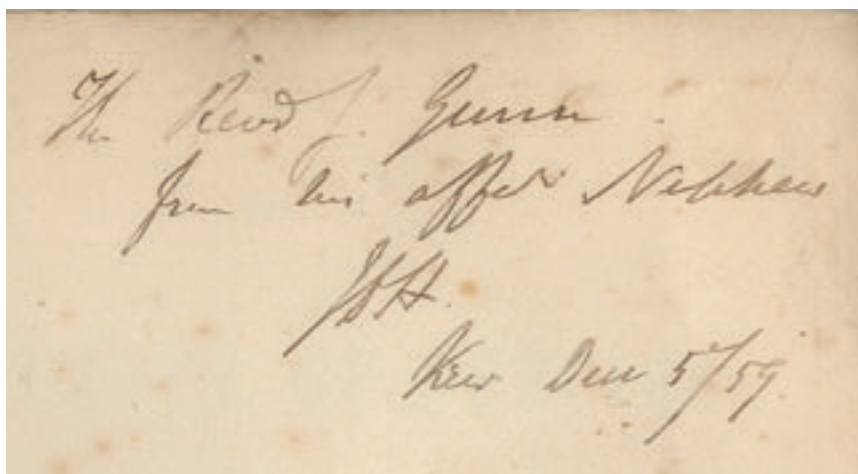 The Revd J. Gunn
from his affte Nephew
JDH.
Kew Decr 5/59.